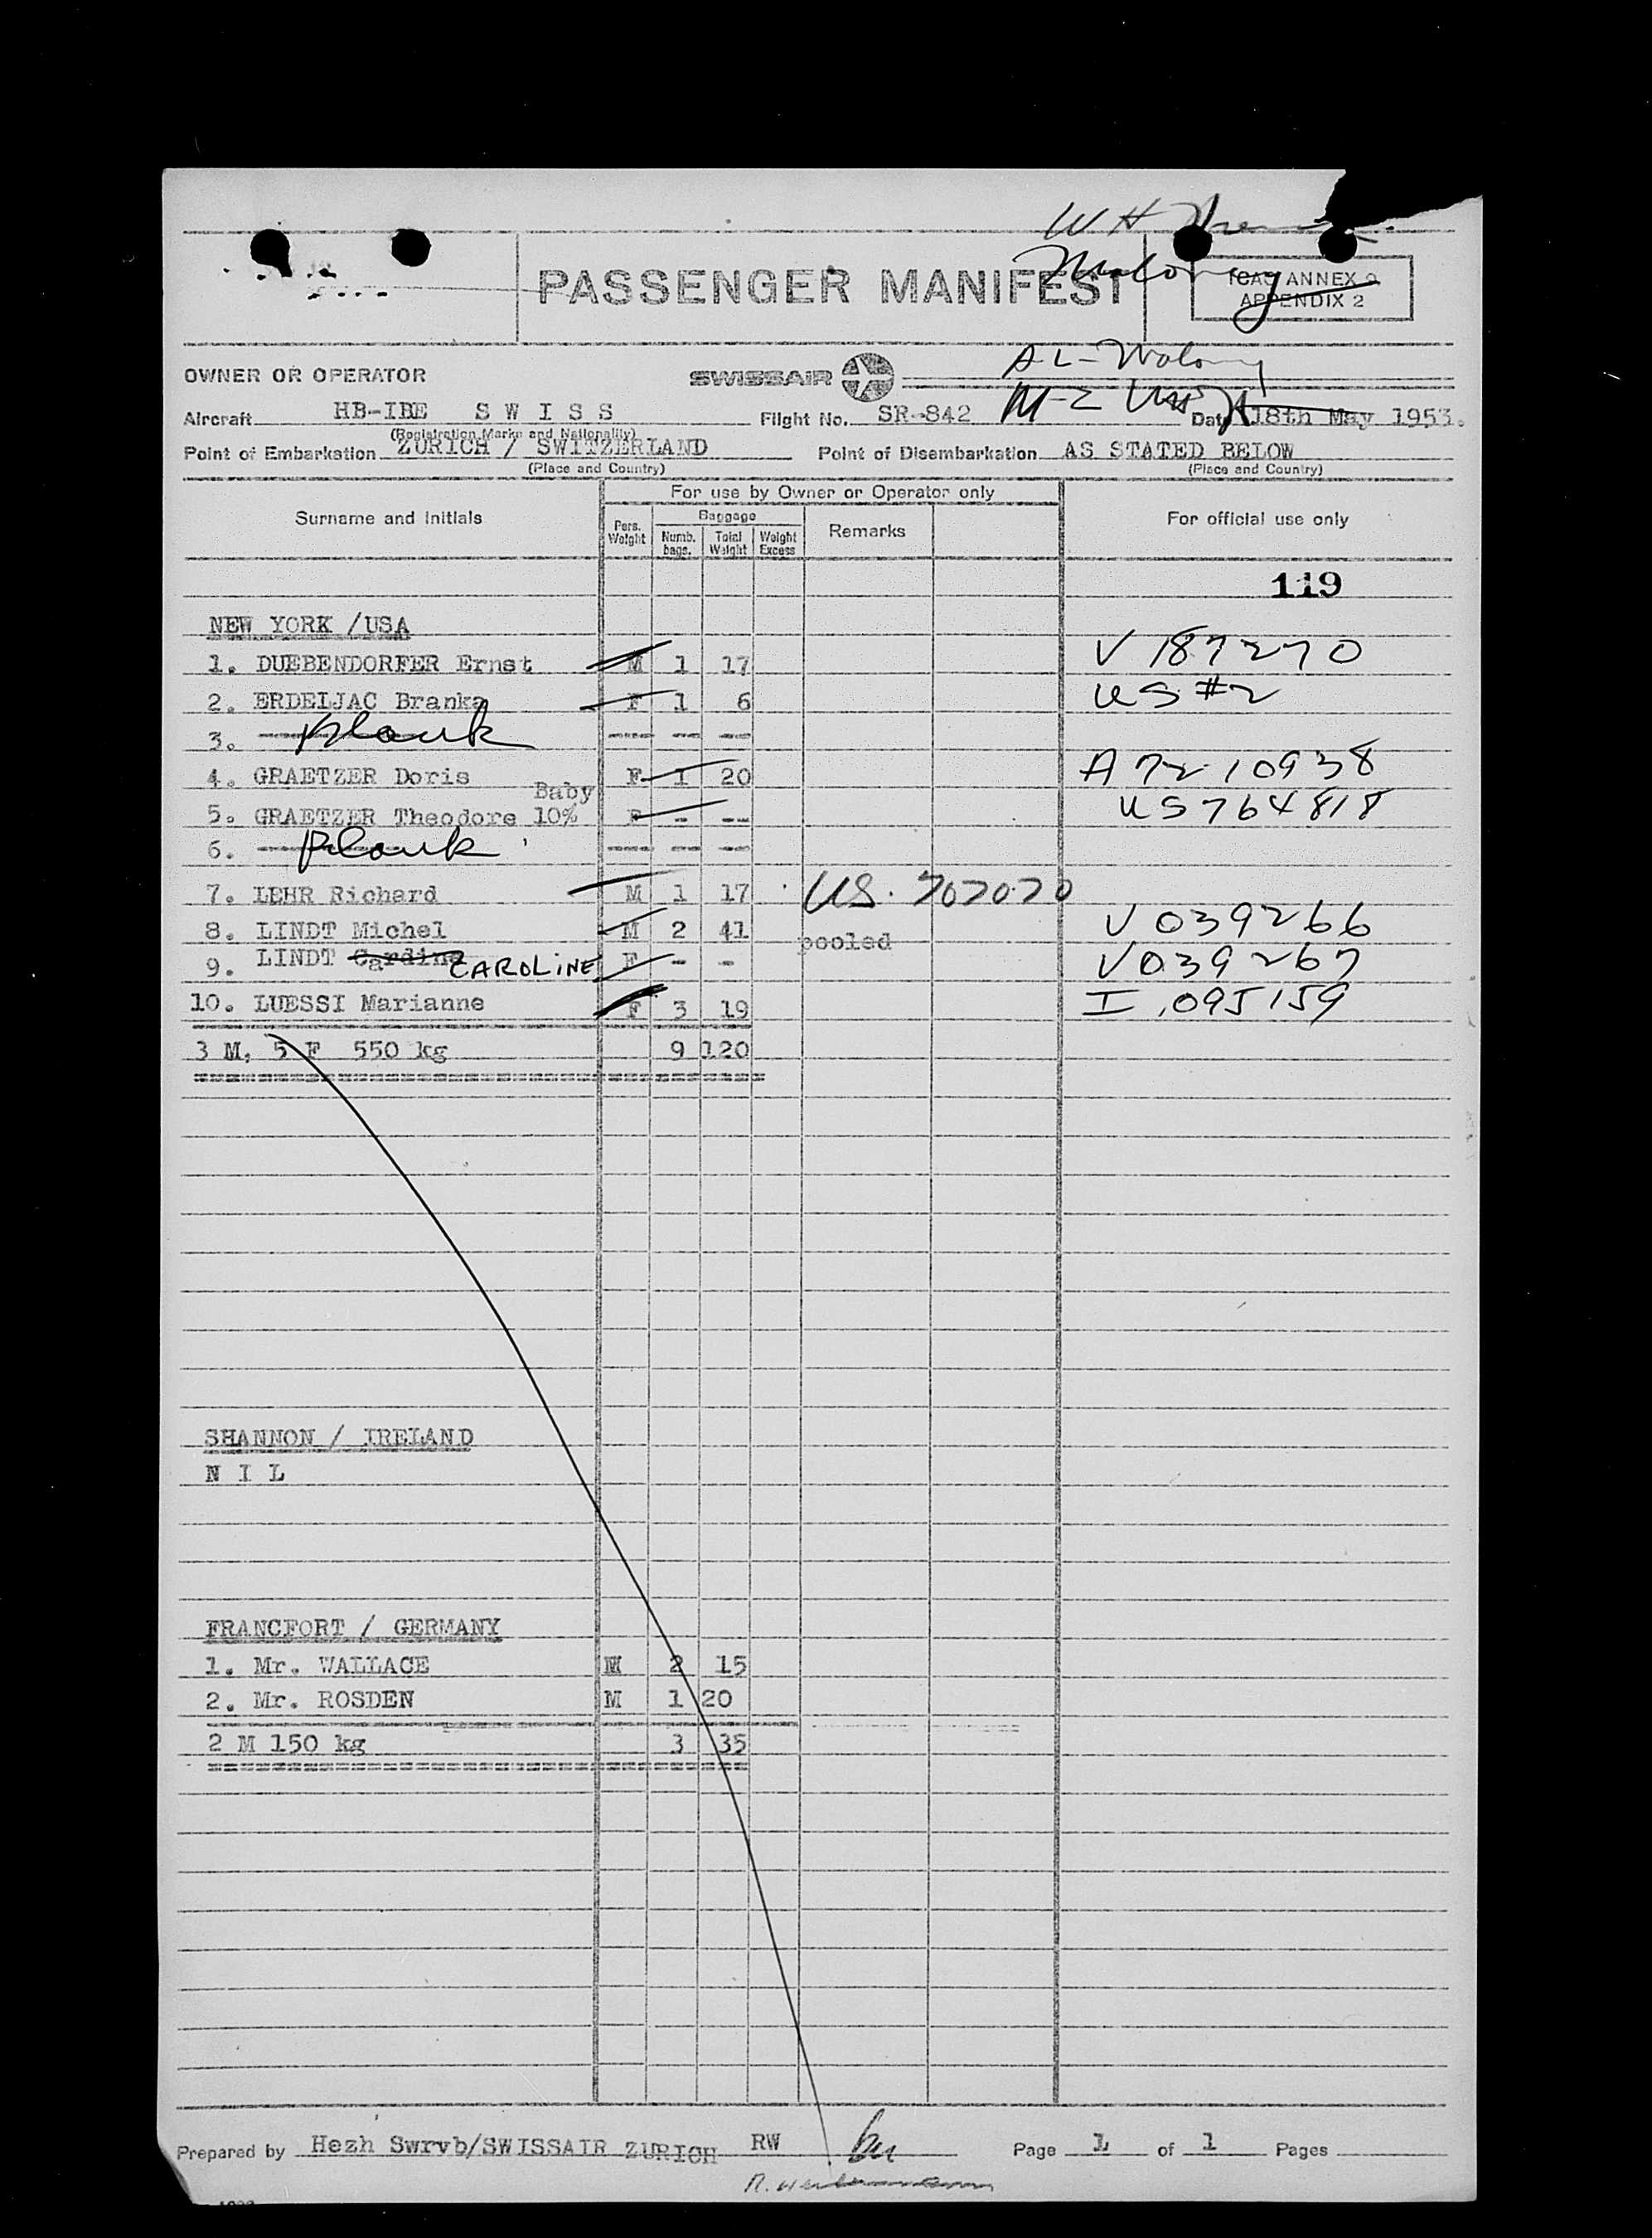 W H
PASSENGER MANIFEST
Malony
ICAO ANNEX 9
APPENDIX 2
AL-Malony
OWNER OR OPERATOR SWISSAIR
Aircraft HB-IBE S W I S S Flight No. SR-842 Date 18th May 1953.
(Registration Marks and Nationality)
Point of Embarkation ZURICH / SWITZERLAND Point of Disembarkation AS STATED BELOW
(Place and Country) (Place and Country)
For use by Owner or Operator only
Surname and Initials Pers. Weight Baggage Numb. bags. Total Weight Weight Excess Remarks For official use only
119
NEW YORK /USA
1. DUEBENDORFER Ernst M 1 17 V 187270
2. ERDELJAC Branka F 1 6 US #2
3. Blank --- -- --
4. GRAETZER Doris F 1 20 A 7210938
5. GRAETZER Theodore Baby 10% F - -- US 764818
6. Blank --- -- --
7. LEHR Richard M 1 17 US. 702020
8. LINDT Michel M 2 41 pooled V 039266
9. LINDT Cardine CAROLINE F - - V039267
10. LUESSI Marianne F 3 19 I .095159
3 M, 5 F 550 kg 9 120
SHANNON / IRELAND
N I L
FRANCFORT / GERMANY
1. Mr. WALLACE M 2 15
2. Mr. ROSDEN M 1 20
2 M 150 kg 3 35
Prepared by Hezh Swrvb/SWISSAIR ZURICH RW Page 1 of 1 Pages